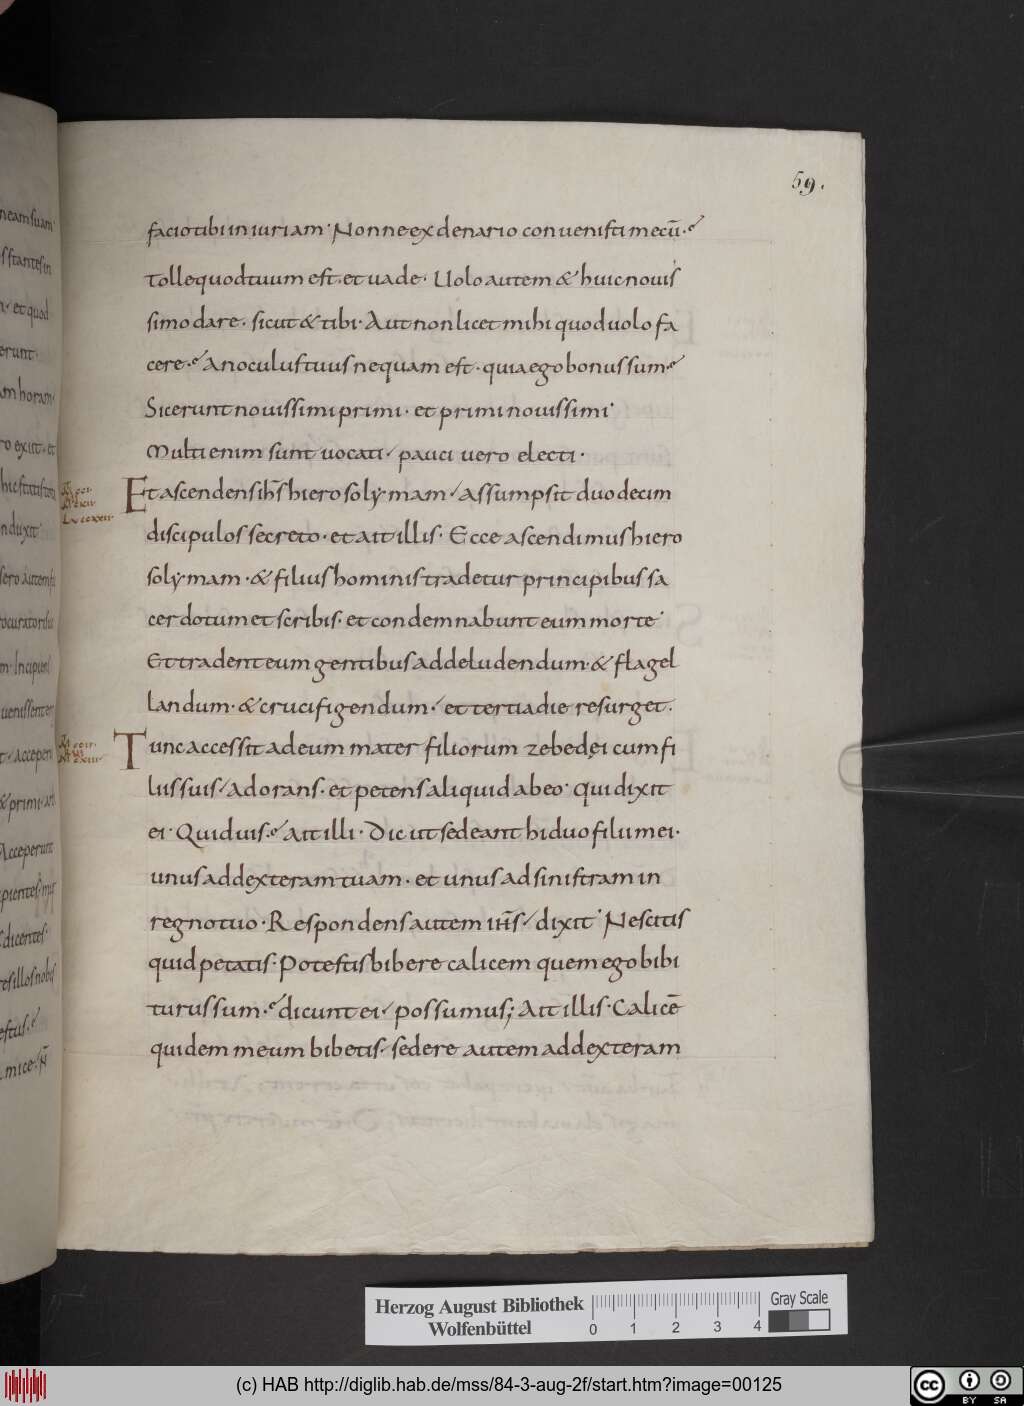 59.
facio tibi iniuriam· Nonne ex denario conuenisti mecū·
Tolle quod tuum est· et uade· Uolo autem & huic nouis
simo dare· sicut & tibi· Aut non licet mihi quod uolo fa
cere· An oculus tuus nequam est· quia ego bonus sum·
Sic erunt nouissimi primi· et primi nouissimi·
Multi enim sunt uocati· pauci uero electi·
Et ascendens ihs̄ hierosolymam· assumpsit duodecim
discipulos secreto· et ait illis· Ecce ascendimus hiero
solymam· & filius hominis tradetur principibus sa
cerdotum et scribis· et condemnabunt eum morte·
Et tradent eum gentibus ad deludendum· & flagel
landum· & crucifigendum· et tertia die resurget·
Tunc accessit ad eum mater filiorum zebedęi cum fi
liis suis· adorans· et petens aliquid ab eo· qui dixit
ei· Quid uis· Ait illi· Dic ut sedeant hi duo filii mei·
unus ad dexteram tuam· et unus ad sinistram in
regno tuo· Respondens autem ihs̄· dixit· Nescitis
quid petatis· Potestis bibere calicem quem ego bibi
turus sum· dicunt ei· possumus; Ait illis· Calicē
quidem meum bibetis· sedere autem ad dexteram
Herzog August Bibliothek
Wolfenbüttel
0 1 2 3 4
Gray Scale
(c) HAB http://diglib.hab.de/mss/84-3-aug-2f/start.htm?image=00125
cc BY SA